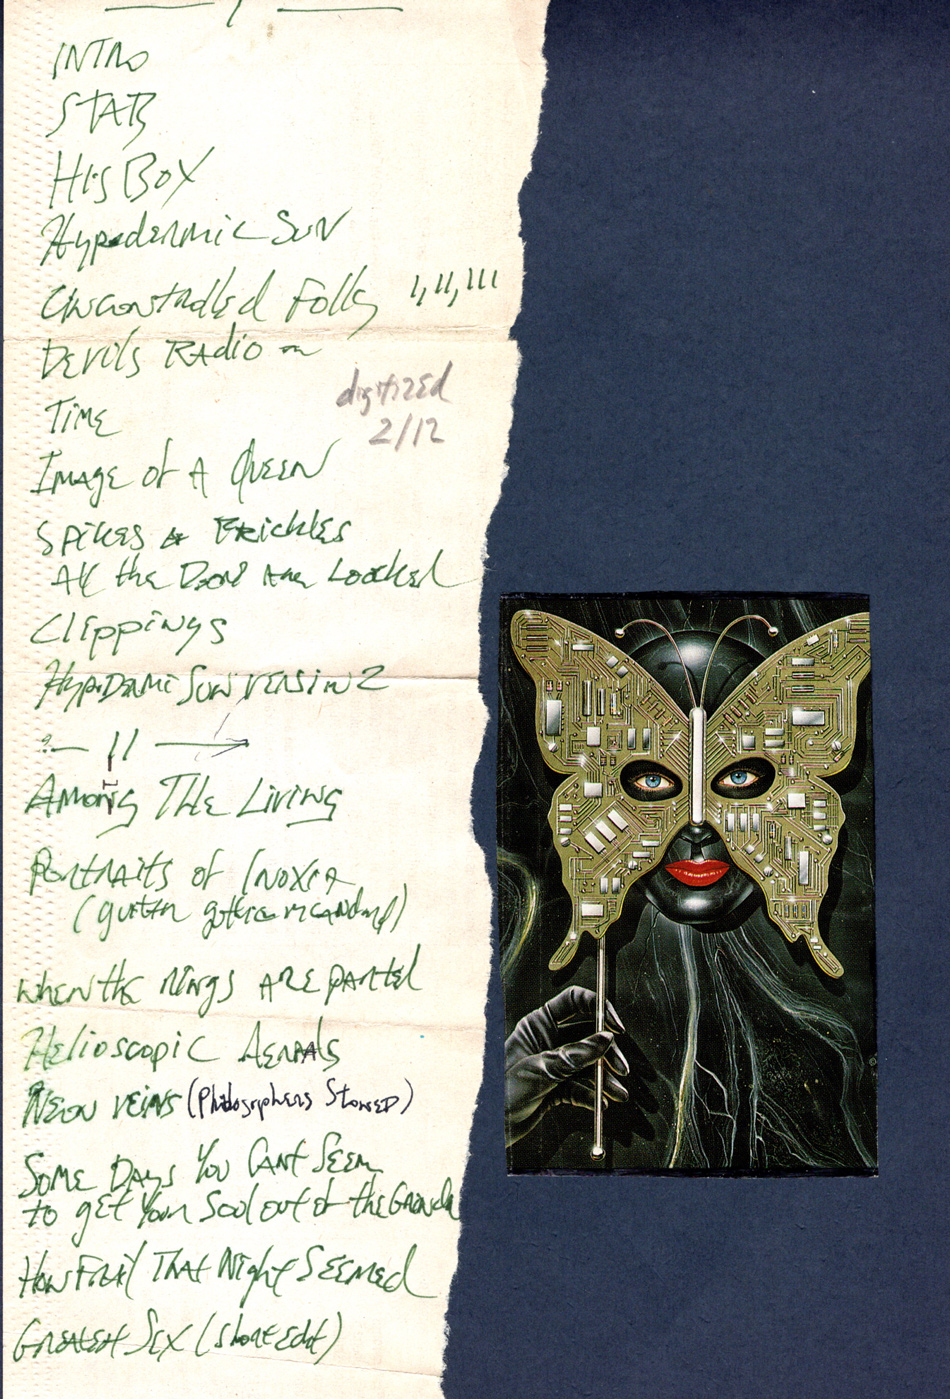 I
INTRO
STAB
His Box
Hypodermic Sun
Uncontrolled Folly I, II, III
Devils Radio on
digitized
2/12
Time
Image of A Queen
Spikes & Prickles
All the Doors Are Loocked
Clippings
Hypodermi Sun version 2
II
Among The Living
Portraits of Inoxia
(guitar gothic
when the rings are parted
Helioscopic Aerials
Neon veins (Philosophers Stoned)
Some Days You Cant Seem
to get Your Soul out of the Ground
How Frail That Night Seemed
Greatest Sex (short edit)